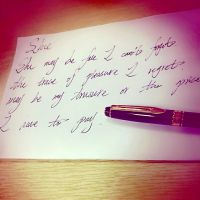 She
She may be the face I can't forget
the trace of pleasure I regret
may be my treasure or the price
I have to pay